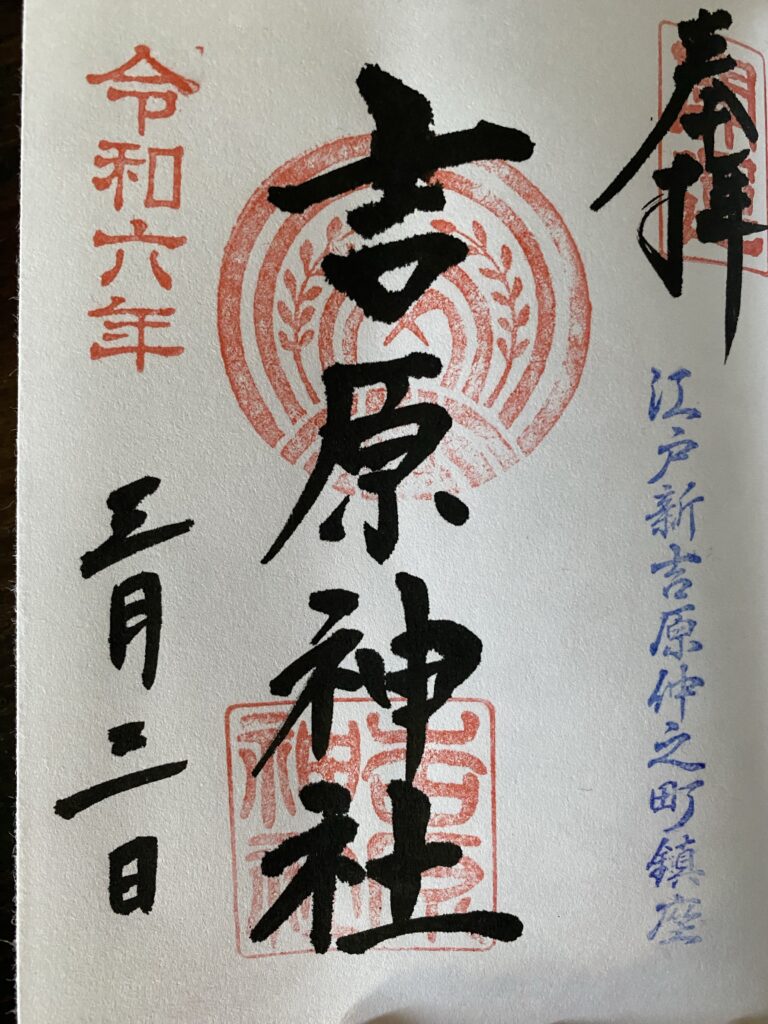 奉拝
開運
江戸新吉原仲之町鎮座
吉原神社
吉原神社
令和六年
三月三日